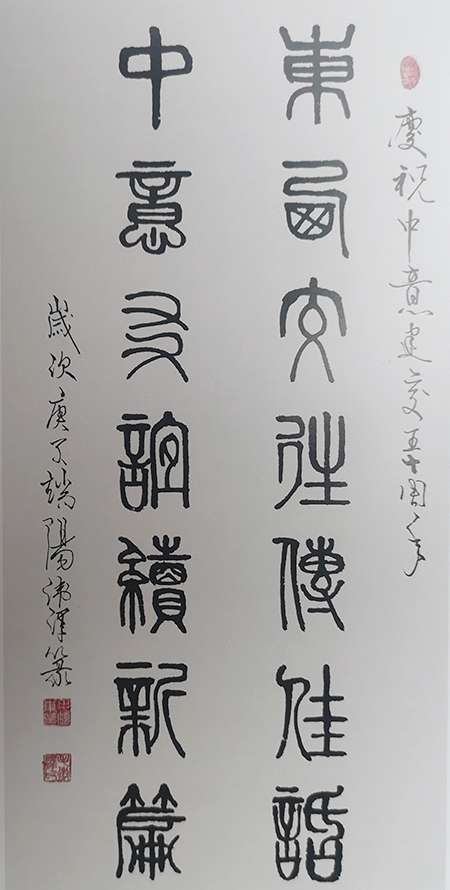 慶祝中意建交五十周年
東西交往傳佳話
中意友誼續新篇
歲次庚子端陽澤篆